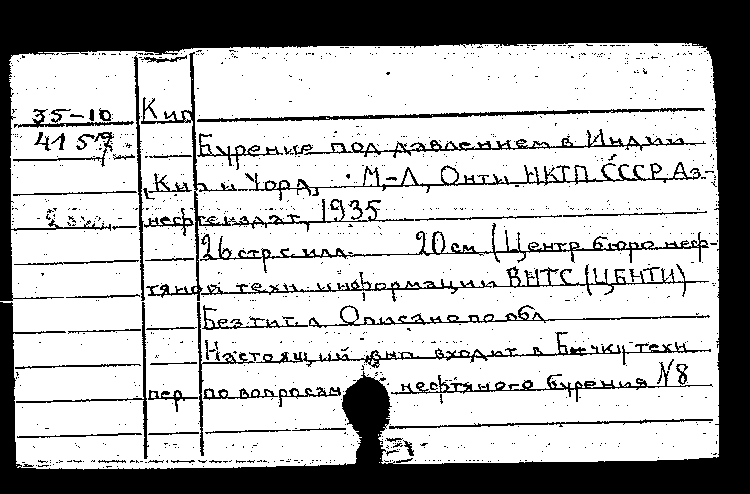 35-10 Кип
4157 Бурение под давлением в Индии
Кип и Уорд, М,-Л, Онти НКТП СССР, Аз-
2 экз. нефтеиздат, 1935
26 стр с илл. 20 см (Центр бюро неф-
тяной техн. информации ВНТС (ЦБНТИ)
Без тит л Описано по обл
Настоящий вып входит в Б-чку техн
пер по вопросам нефтяного бурения №8